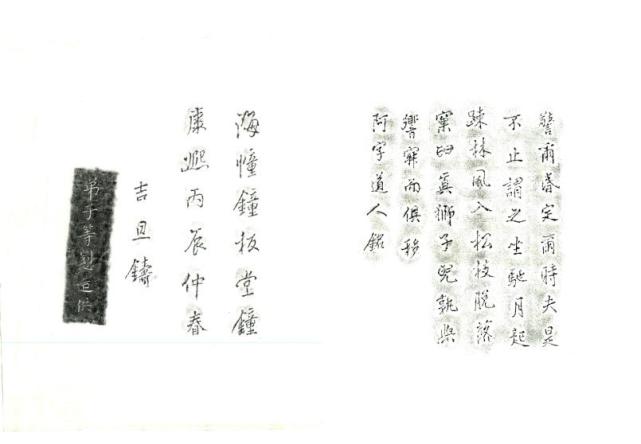 警爾昏定爾時夫是
不止謂之坐馳月起
踈林風入松枝脱落
窠臼真獅子兒孰與
響寂而俱移
阿字道人銘
海幢鐘板堂鐘
康熙丙辰仲春
吉旦鑄
弟子等